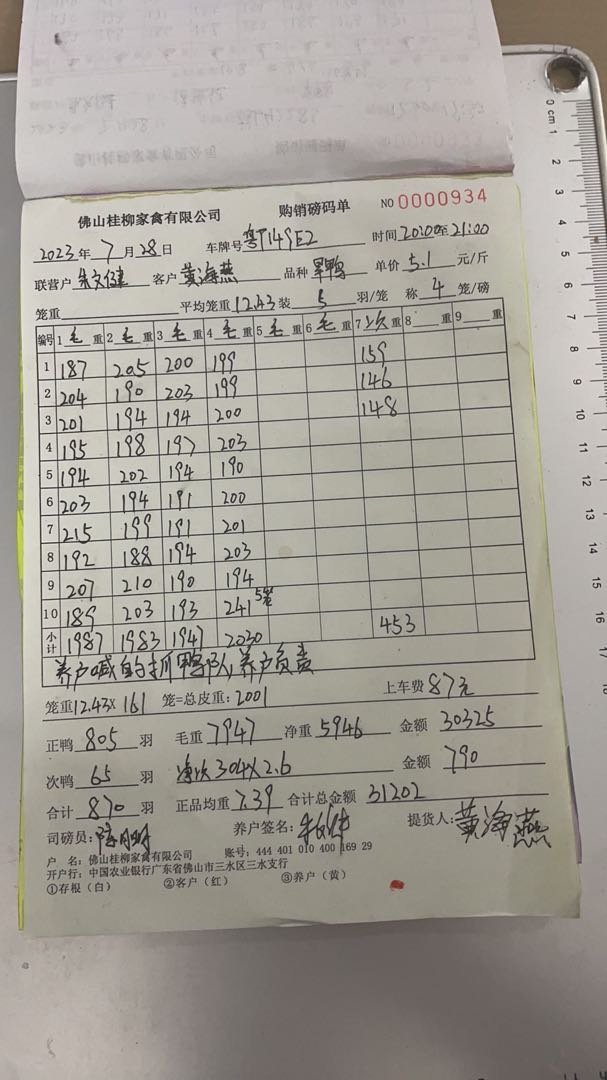 佛山桂柳家禽有限公司 购销磅码单 NO 0000934
2023年 7月 28日 车牌号 粤T149E2 时间 20:00至21:00
联营户 朱文健 客户 黄海燕 品种 单价 5.1 元/斤
笼重 平均笼重 12.43 装 5 羽/笼 称 4 笼/磅
编号 1 毛 重 2 毛 重 3 毛 重 4 毛 重 5 毛 重 6 毛 重 7 次 重 8 重 9 重
1 187 205 200 199 159
2 204 190 203 199 146
3 201 194 194 200 148
4 195 198 197 203
5 194 202 194 190
6 203 194 191 200
7 215 199 191 201
8 192 188 194 203
9 207 210 190 194
10 189 203 193 241 5笼
小计 1987 1983 1947 2030 453
养户喊的抓鸭队,养户负责
笼重 12.43 X 161 笼=总皮重: 2001 上车费 87元
正鸭 805 羽 毛重 7947 净重 5946 金额 30325
次鸭 65 羽 净次 304X2.6 金额 790
合计 870 羽 正品均重 7.39 合计总金额 31202
司磅员: 养户签名: 提货人: 黄海燕
户 名: 佛山桂柳家禽有限公司 账号: 444 401 010 400 169 29
开户行: 中国农业银行广东省佛山市三水区三水支行
①存根（白） ②客户（红） ③养户（黄）
0 cm 1 2 3 4 5 6 7 8 9 10 11 12 13 14 15 16 17